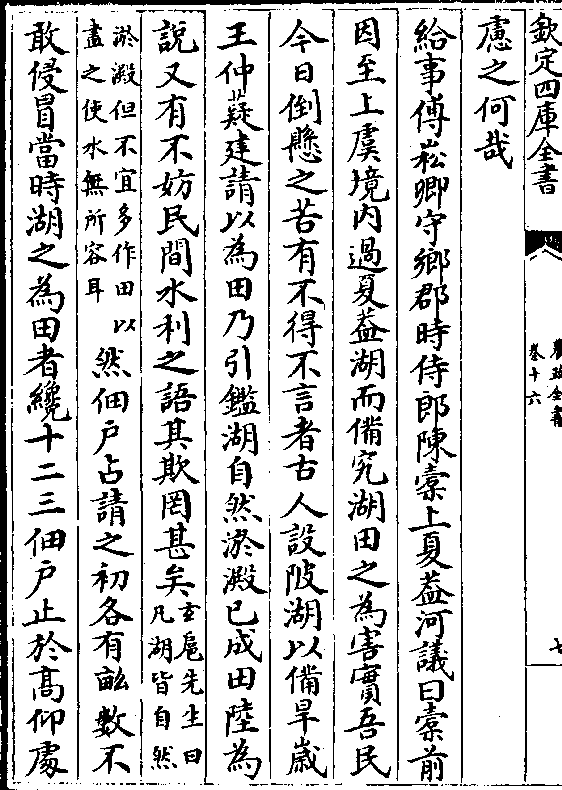 欽定四庫全書
農政全書
卷十六
七
慮之何哉
給事傅崧卿守鄉郡時侍郎陳橐上夏蓋河議曰橐前
因至上虞境内過夏葢湖而備究湖田之為害實吾民
今日倒懸之苦有不得不言者古人設陂湖以備旱歲
王仲薿建請以為田乃引鑑湖自然淤澱已成田陸為
說又有不妨民間水利之語其欺罔甚矣玄扈先生曰凡湖皆自然
淤澱但不宜多作田以盡之使水無所容耳然佃户占請之初各有畝數不
敢侵冒當時湖之為田者纔十二三佃户止於高仰處